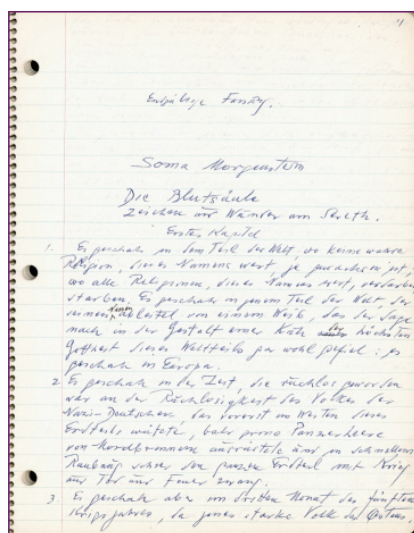 1
Endgültige Fassung.
Soma Morgenstern
Die Blutsäule
Zeichen und Wunder am Sereth.
Erstes Kapitel
1. Es geschah in dem Teil der Welt, wo keine wahre
Religion, dieses Namens wert, je
wo alle Religionen, dieses Namens wert, verdarben
starben. Es geschah in jenem Teil der Welt, der
seinen Namen ableitet von einem Weib, das der Sage
nach in der Gestalt einer Kuh der höchsten
Gottheit dieses Weltteils gar wohl gefiel: es
geschah in Europa.
2 Es geschah in der Zeit, die ruchlos geworden
war an der Ruchlosigkeit des Volkes der
Nazi-Deutschen, das vorerst im Westen dieses
Erdteils wütete, sehr
von Mordbrennern ausrüstete und in schnellem
den ganzen Erdteil mit Krieg
und Tod und Feuer zwang.
3. Es geschah aber im dritten Monat des fünften
Kriegsjahres, da jenes starke Volk des Ostens,